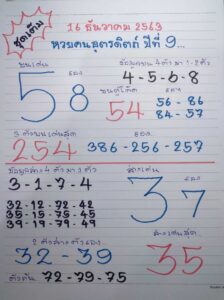 ชุดเต็ม
16 ธันวาคม 2563
หวยคนอุตรดิตถ์ ปีที่ 9...
บนเด่น
รอง
5 8
4-5-6-8
54
56 - 86
84 - 57
3 ตัวบนเด่นสุด
254
386-256-257
3-1-7-4
32-12-72-42
35-15-75-45
39-19-79-49
รอง
37
2 ตัวล่าง
32-39
72-79-75
35